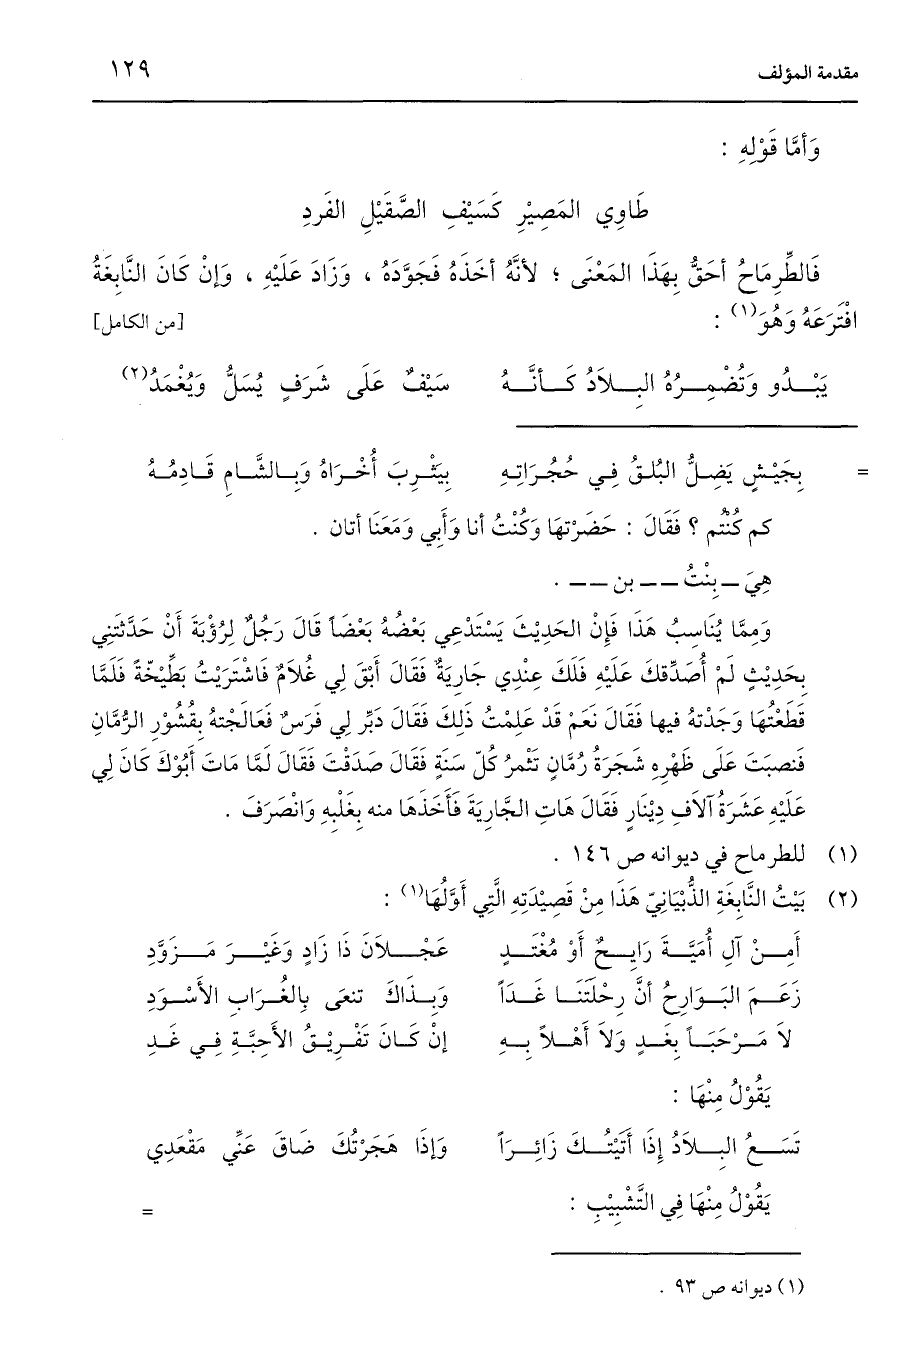 مقدمة المؤلف ١٢٩
وَأمَّا قَوْلِهِ :
طَاوِي المَصِيْرِ كَسَيْفِ الصَّقَيْلِ الفَردِ
فَالطِّرِمَاحُ أحَقُّ بِهَذَا المَعْنَى ؛ لأنَّهُ أخَذَهُ فَجَوَّدَهُ ، وَزَادَ عَلَيْهِ ، وَإنْ كَانَ النَّابِغَةُ
افْتَرَعَهُ وَهُوَ(١) : [من الكامل]
يَبْـدُو وَتُضْمِـرُهُ البِـلاَدُ كَـأنَّـهُ سَيْفٌ عَلَى شَرَفٍ يُسَلُّ وَيُغْمَدُ(٢)
= بِجَيْشٍ يَضِـلُّ البُلقُ فِـي حُجُـرَاتِـهِ بِيَثْـرِبَ أُخْـرَاهُ وَبِـالشَّـامِ قَـادِمُـهُ
كم كُنْتُم ؟ فَقَالَ : حَضَرْتهَا وَكُنْتُ أنا وَأَبِي وَمَعَنَا أتان .
هِيَ ــ بِنْتُ ــ ــ بن ــ ــ .
وَمِمَّا يُنَاسِبُ هَذَا فَإِنْ الحَدِيْثَ يَسْتَدْعِي بَعْضُهُ بَعْضَاً قَالَ رَجُلٌ لِرُؤْبَةَ أَنْ حَدَّثْتنِي
بِحَدِيْثٍ لَمْ أُصَدِّقكَ عَلَيْهِ فَلَكَ عِنْدِي جَارِيَةٌ فَقَالَ أَبْقَ لِي غُلاَمٌ فَاشْتَرَيْتُ بَطِّيْخَةً فَلَمَّا
قَطَعْتُهَا وَجَدْتهُ فيها فَقَالَ نَعَمْ قَدْ عَلِمْتُ ذَلِكَ فَقَالَ دَبِّر لِي فَرَسٌ فَعَالَجْتهُ بِقُشُوْرِ الرُّمَّانِ
فَنصبَتَ عَلَى ظَهْرِهِ شَجَرَةُ رُمَّانٍ تَثْمرُ كُلّ سَنَةٍ فَقَالَ صَدَقْتَ فَقَالَ لَمَّا مَاتَ أَبُوْكَ كَانَ لِي
عَلَيْهِ عَشَرَةُ آلاَفِ دِيْنَارٍ فَقَالَ هَاتِ الجَّارِيَةَ فَأَخَذَهَا منه بِغَلْبِهِ وَانْصَرَفَ .
(١) للطرماح في ديوانه ص ١٤٦ .
(٢) بَيْتُ النَّابِغَةِ الذُّبْيَانِيّ هَذَا مِنْ قَصِيْدَتِهِ الَّتِي أَوَّلُهَا(١) :
أَمِـنْ آلِ أُمَيَّـةَ رَايِـحٌ أَوْ مُغْتَـدِ عَجْـلاَنَ ذَا زَادٍ وَغَيْـرَ مَـزَوَّدِ
زَعَـمَ البَـوَارِحُ أنَّ رِحْلَتَنَـا غَـدَاً وَبِـذَاكَ تنعَى بِالغُرَابِ الأسْـوَدِ
لاَ مَـرْحَبَـاً بِغَـدٍ وَلاَ أَهْـلاً بِـهِ إنْ كَـانَ تَفْرِيْـقُ الأحِبَّـةِ فِـي غَـدِ
يَقُوْلُ مِنْهَا :
تَسَـعُ البِـلاَدُ إذَا أتَيْتُـكَ زَائِـرَاً وَإذَا هَجَرْتُكَ ضَاقَ عَنِّي مَقْعَدِي
يَقُوْلُ مِنْهَا فِي التَّشْبِيْبِ :
=
(١) ديوانه ص ٩٣ .